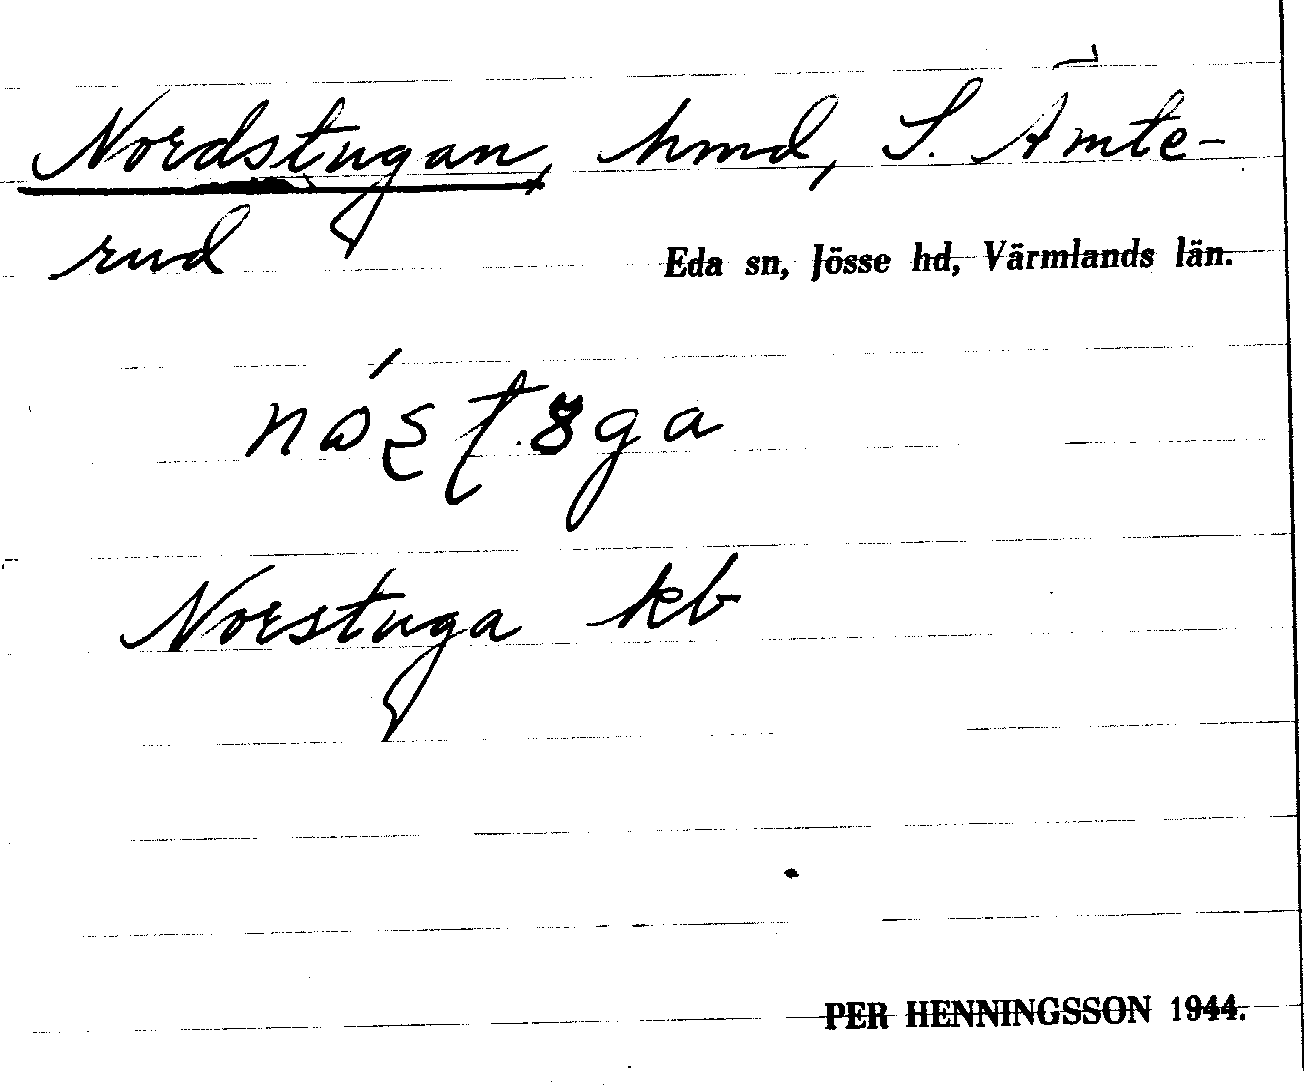 Nordstugan, hmd, S. Ämte-
rud
Eda sn, Jösse hd, Värmlands län.
Norstuga kb
PER HENNINGSSON 1944.